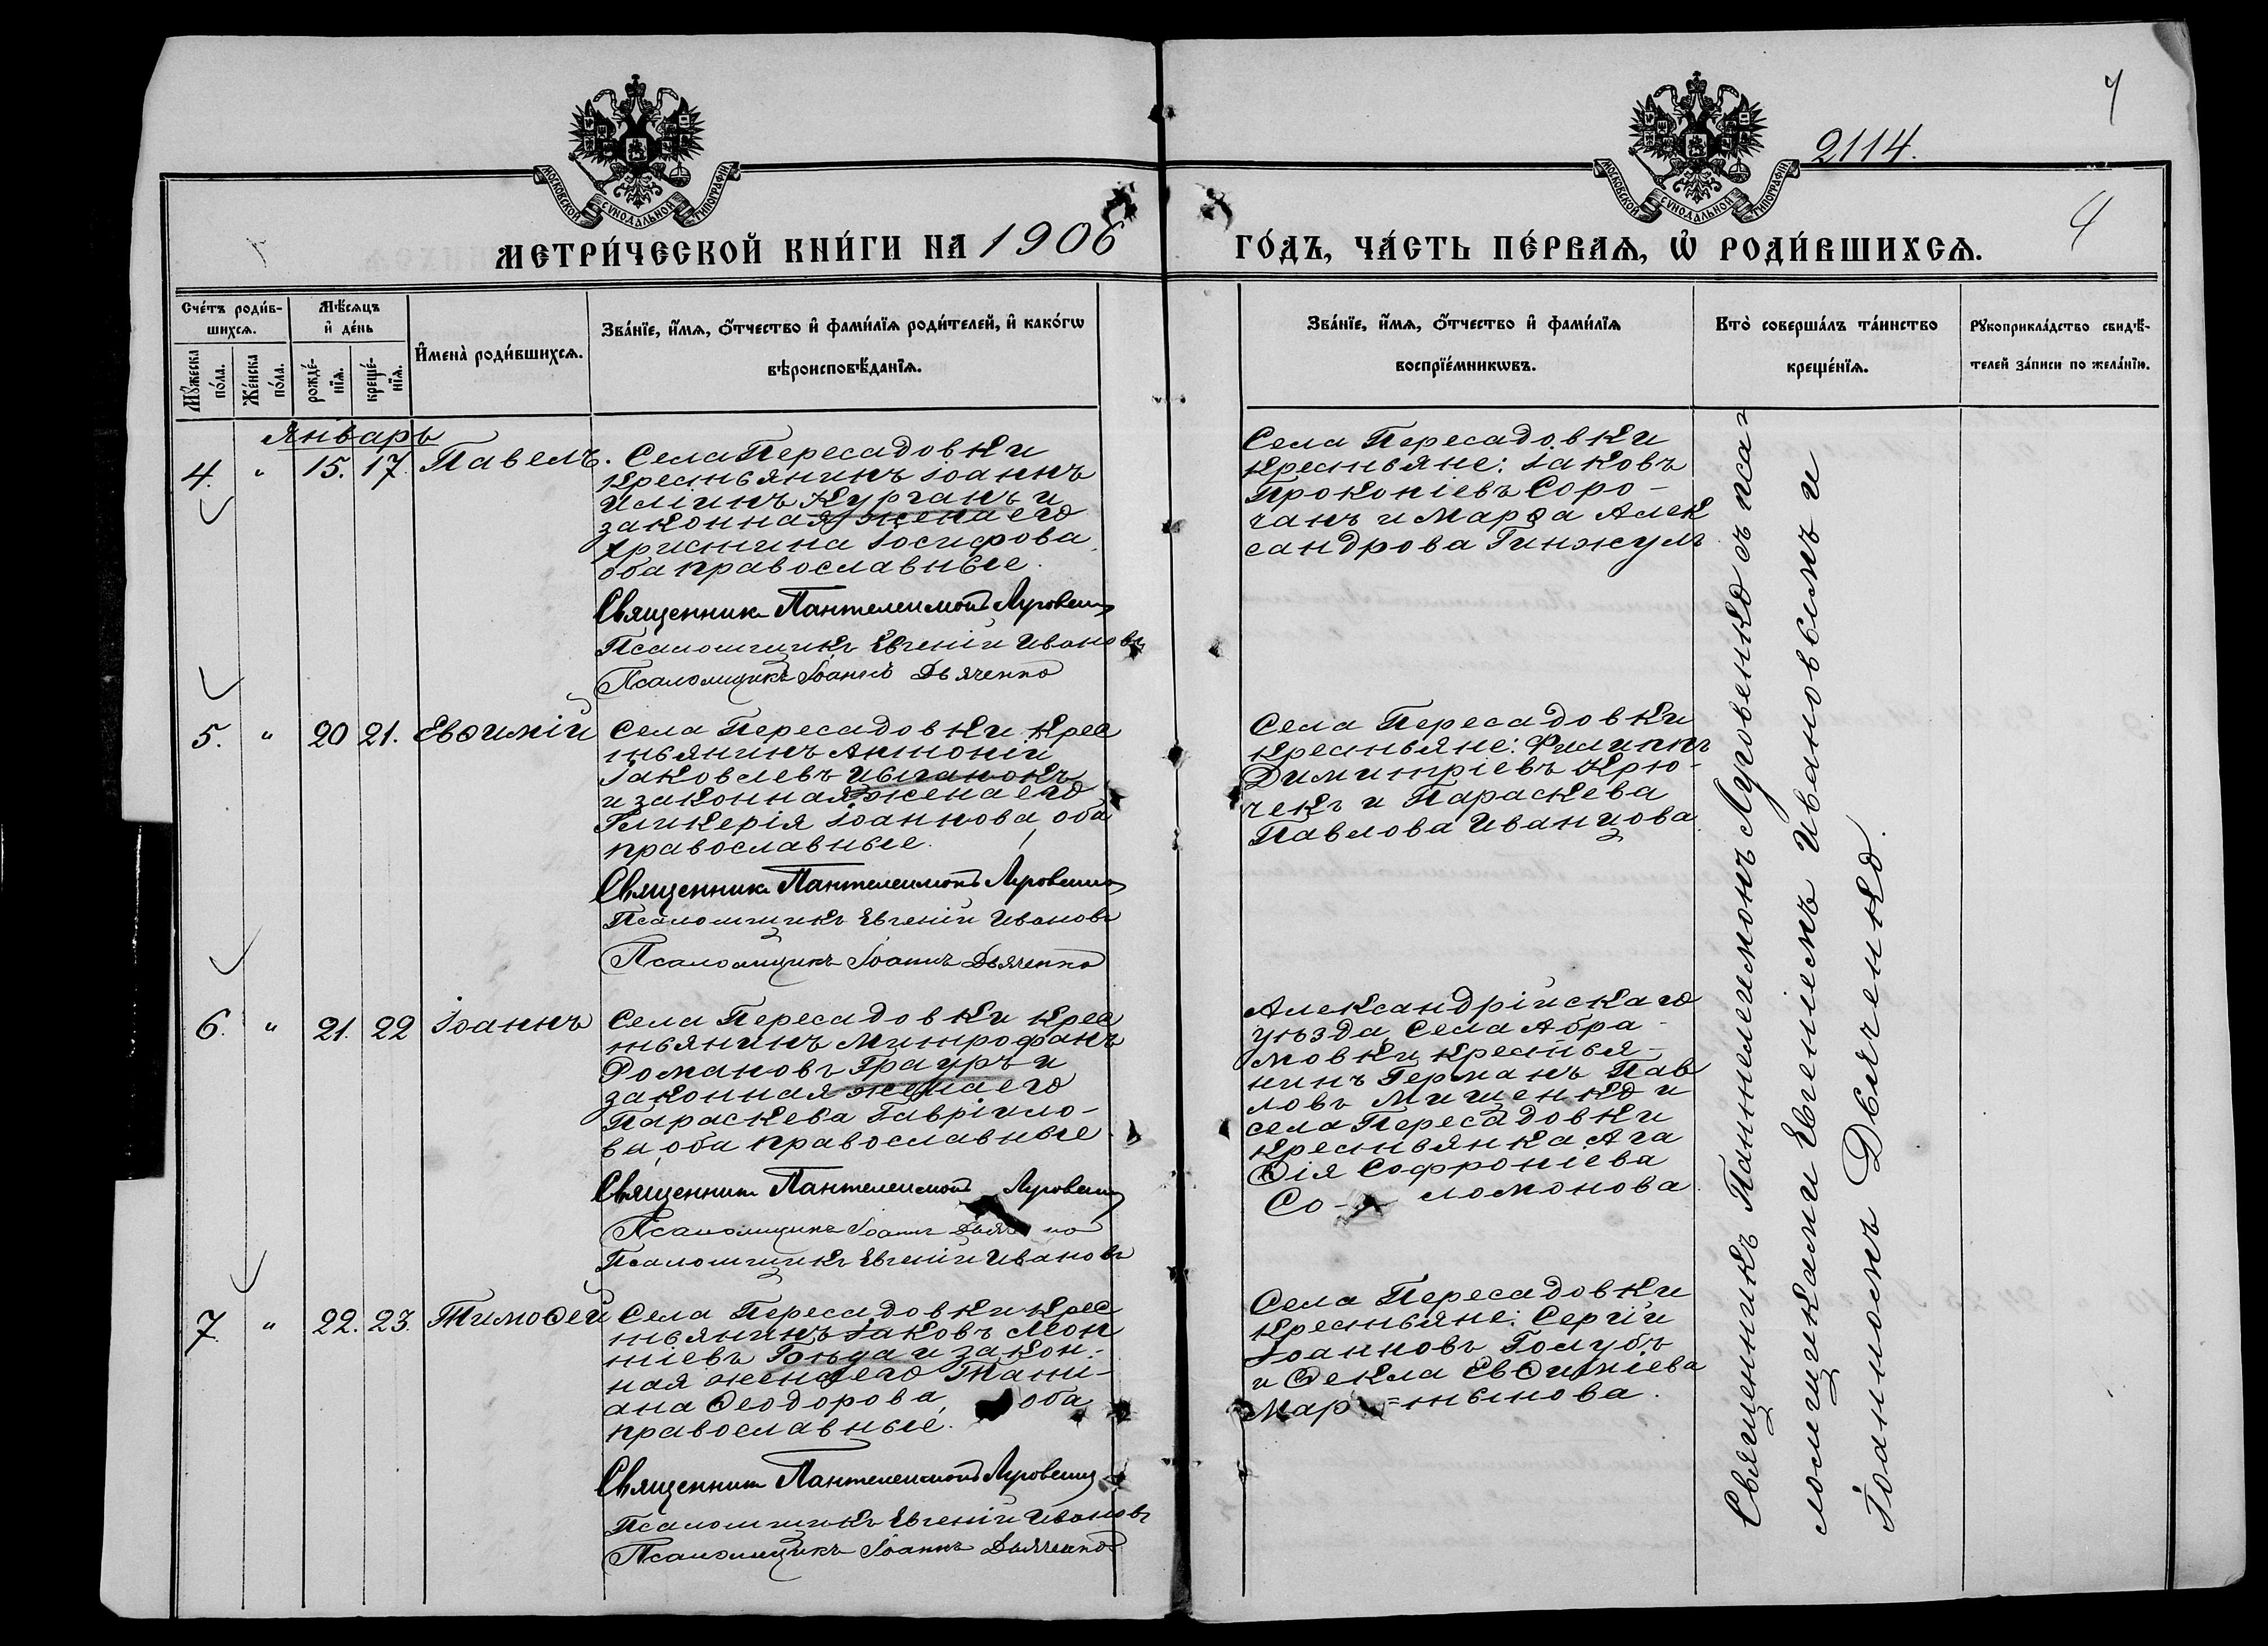 МОСКОВСКОЙ СѴНОДАЛЬНОЙ ТИПОГРАФІИ
МОСКОВСКОЙ СѴНОДАЛЬНОЙ ТИПОГРАФІИ
2114.
4
МЕТРИ́ЧЕСКОЙ КНИ́ГИ НА 1906
ГО́ДЪ, ЧА́СТЬ ПЕ́РВАѦ, Ѡ҆ РОДИ́ВШИХСѦ.
Сче́тъ роди́в-
шихсѧ.
Мѣ́сѧцъ
и҆ де́нь
Мꙋ́жеска
по́ла.
Же́нска
по́ла.
рожде́-
нїѧ.
креще́-
нїѧ.
И҆мена̀ роди́вшихсѧ.
Зва́нїе, и҆́мѧ, ѻ҆́тчество и҆ фами́лїѧ роди́телей, и҆ како́гѡ
вѣроисповѣ́данїѧ.
Зва́нїе, и҆́мѧ, ѻ҆́тчество и҆ фами́лїѧ
воспрїе́мникѡвъ.
Кто̀ соверша́лъ та́инство
креще́нїѧ.
Рꙋкоприкла́дство свидѣ́-
телей за́писи по жела́нїю.
Январь
4. " 15. 17. Павелъ.
Села Пересадовки
крестьянинъ Іоаннъ
Иліинъ Курганъ и
законная жена его
Христина Іосифова,
оба православные.
Священникъ Пантелеимонъ Луговенко
Псаломщикъ Евгеній Ивановъ
Псаломщикъ Іоаннъ Дьяченко
Села Пересадовки
крестьяне: Іаковъ
Прокопіевъ Соро-
чанъ и Марѳа Алек
сандрова Гинжулъ
5. " 20 21. Евѳимій
Села Пересадовки крес
тьянинъ Антоній
Іаковлевъ Цыганокъ
и законная жена его
Гликерія Іоаннова, оба
православные.
Священникъ Пантелеимонъ Луговенко
Псаломщикъ Евгеній Ивановъ
Псаломщикъ Іоаннъ Дьяченко
Села Пересадовки
крестьяне: Филиппъ
Димитріевъ Крю-
чекъ и Параскева
Павлова Иванцова
6. " 21. 22 Іоаннъ
Села Пересадовки крес
тьянинъ Митрофанъ
Романовъ Грауръ и
законная жена его
Параскева Гавріило-
ва, оба православные
Священникъ Пантелеимонъ Луговенко
Псаломщикъ Іоаннъ Дьяч но
Псаломщикъ Евгеній Ивановъ
Александрійскаго
уѣзда, села Абра-
мовки крестья-
нинъ Германъ Пав
ловъ Мищенко и
села Пересадовки
крестьянка Ага
ѳія Софроніева
Со- ломонова
7. " 22. 23. Тимоѳей
Села Пересадовки крес
тьянинъ Іаковъ
ніевъ и закон-
ная жена его Тати-
ана Ѳеодорова, оба
православные.
Священникъ Пантелеимонъ Луговенко
Псаломщикъ Евгеній Ивановъ
Псаломщикъ Іоаннъ Дьяченко
Села Пересадовки
крестьяне: Сергій
Іоанновъ Голубъ
и Ѳекла Евѳиміева
Мар=тынова.
Священникъ Пантелеимонъ Луговенко съ пса-
ломщиками Евгеніемъ Ивановымъ и
Іоанномъ Дьяченко.